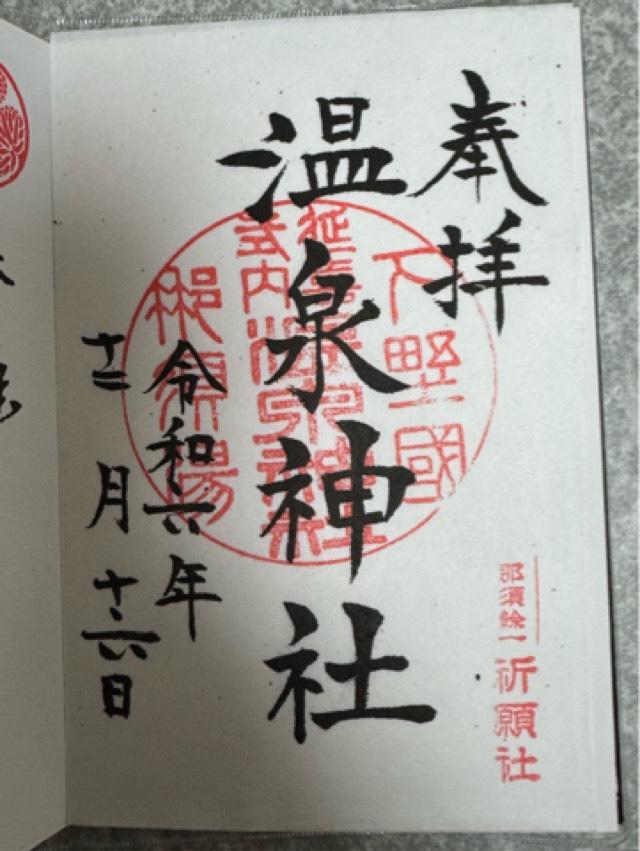 奉拝
下野國
延喜
式内
温泉神社
温泉神社
那須湯
令和六年
十二月十六日
那須餘一
祈願社